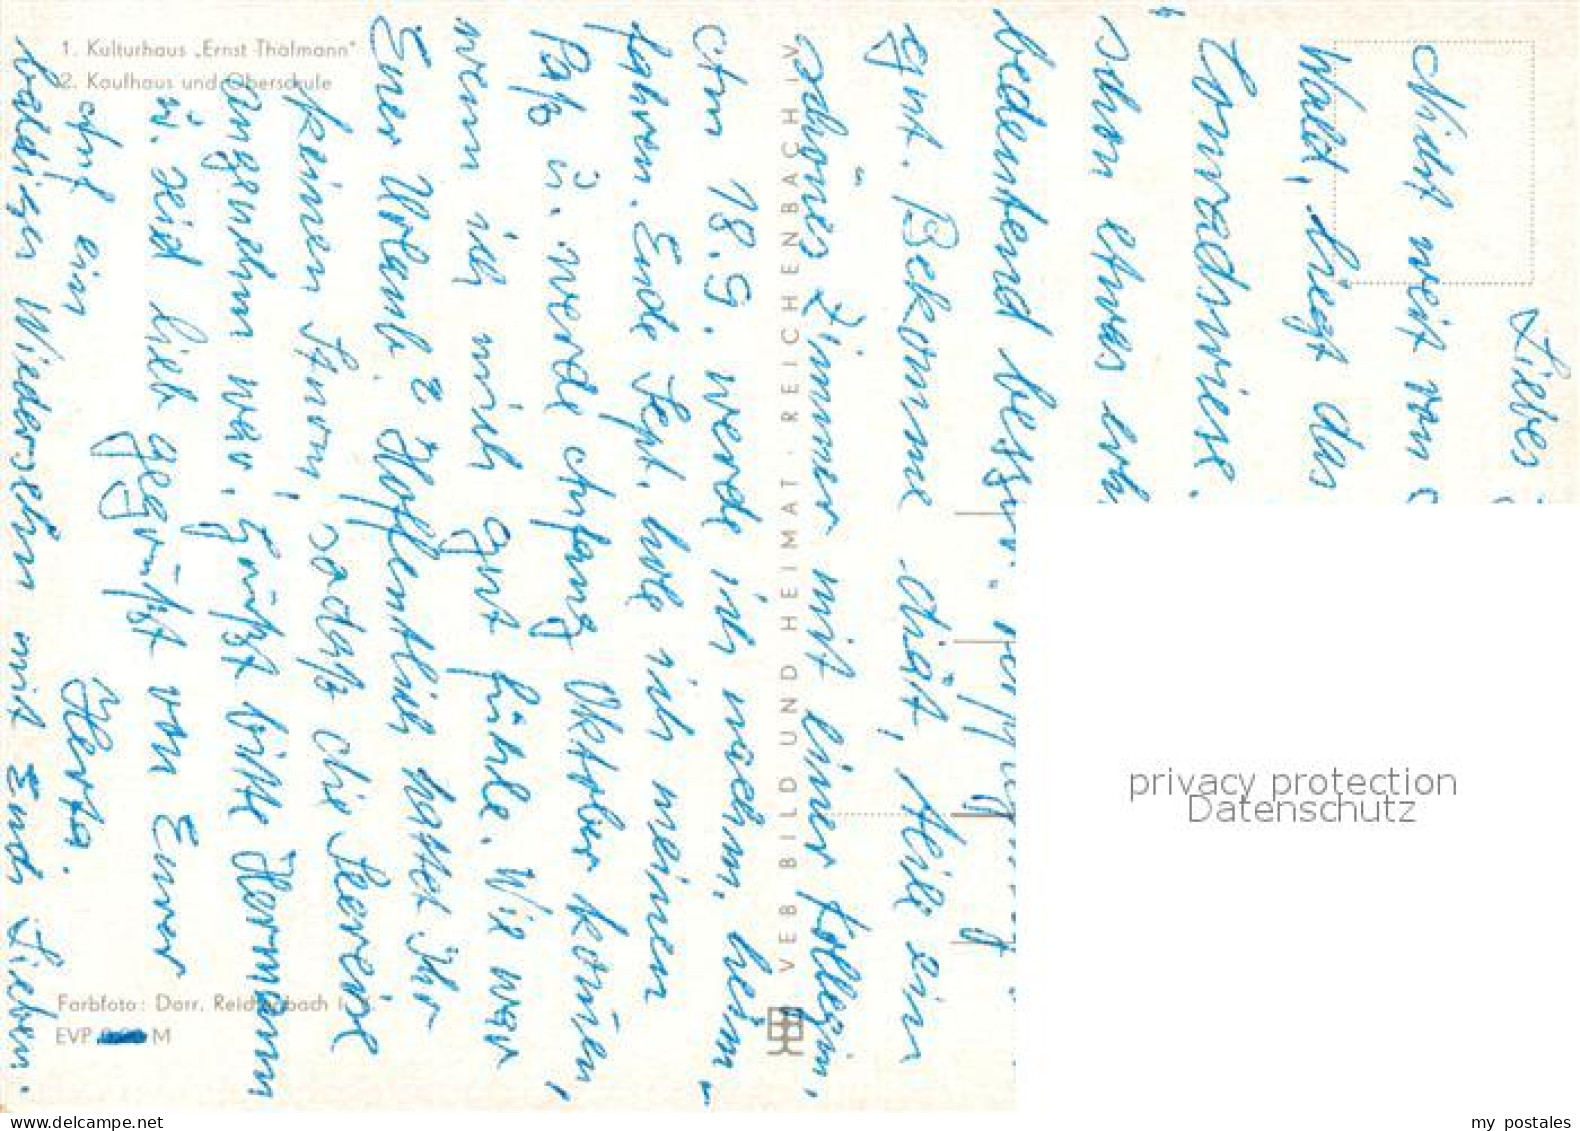 1. Kulturhaus „Ernst Thälmann"
2. Kaufhaus und Oberschule
Liebes
Nicht weit von
Wald, liegt das
Conradswiese.
schon etwas erh
bedeutend besser.
gut. Bekomme diät, teile ein
schönes Zimmer mit einer Kollegin,
Am 18.9. werde ich wochm. heim-
fahren. Ende Sept. hole ich meinen
Paß u. werde Anfang Oktober kommen,
wenn ich mich gut fühle. Wie war
Euer Urlaub? Hoffentlich hattet Ihr
keinen Sturm, sodaß die Seereise
angenehm war. Grüßt bitte Hermann
u. seid lieb gegrüßt von Eurer
Herta.
Auf ein
baldiges Wiedersehn mit Euch Lieben.
VEB BILD UND HEIMAT · REICHENBACH I. V
Farbfoto: Darr, Reichenbach i. V.
EVP M
privacy protection
Datenschutz
www.delcampe.net
my_postales